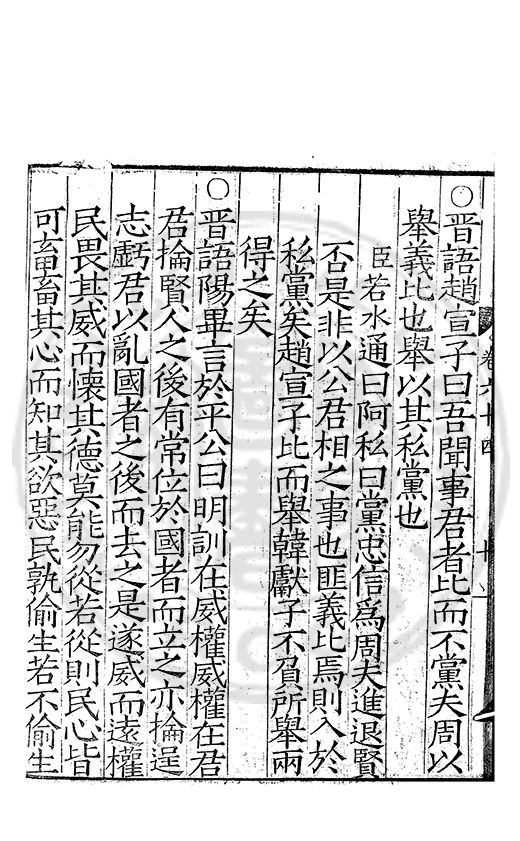 ○晉語趙宣子曰吾聞事君者比而不黨夫周以
舉義比也舉以其私黨也
臣若水通曰阿私曰黨忠信爲周夫進退賢
否是非以公君相之事也匪義比焉則入於
私黨矣趙宣子比而舉韓獻子不負所舉兩
得之矣
○晉語陽畢言於平公曰明訓在威權威權在君
君掄賢人之後有常位於國者而立之亦掄逞
志虧君以亂國者之後而去之是遂威而遠權
民畏其威而懷其德莫能勿從若從則民心皆
可畜畜其心而知其欲惡民孰偷生若不偷生
卷六十四